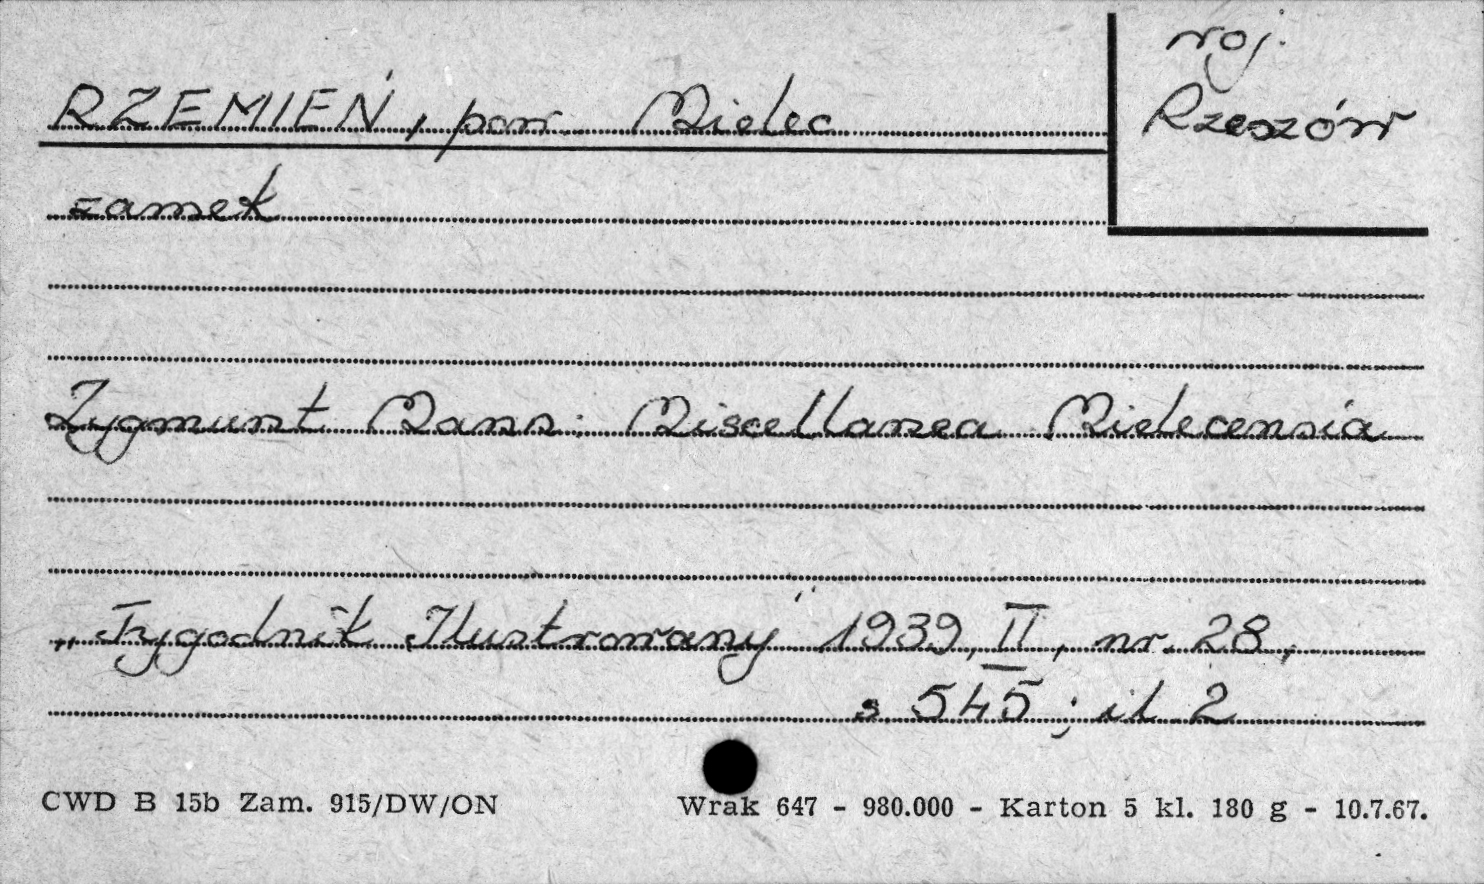 woj.
Rzeszów
RZEMIEŃ, pow. Mielec
zamek
Zygmunt Mann: Miscellanea Mielecensia
„Tygodnik Ilustrowany" 1939, II, nr. 28,
s 545; il 2
CWD B 15b Zam. 915/DW/ON
Wrak 647 - 980.000 - Karton 5 kl. 180 g - 10.7.67.